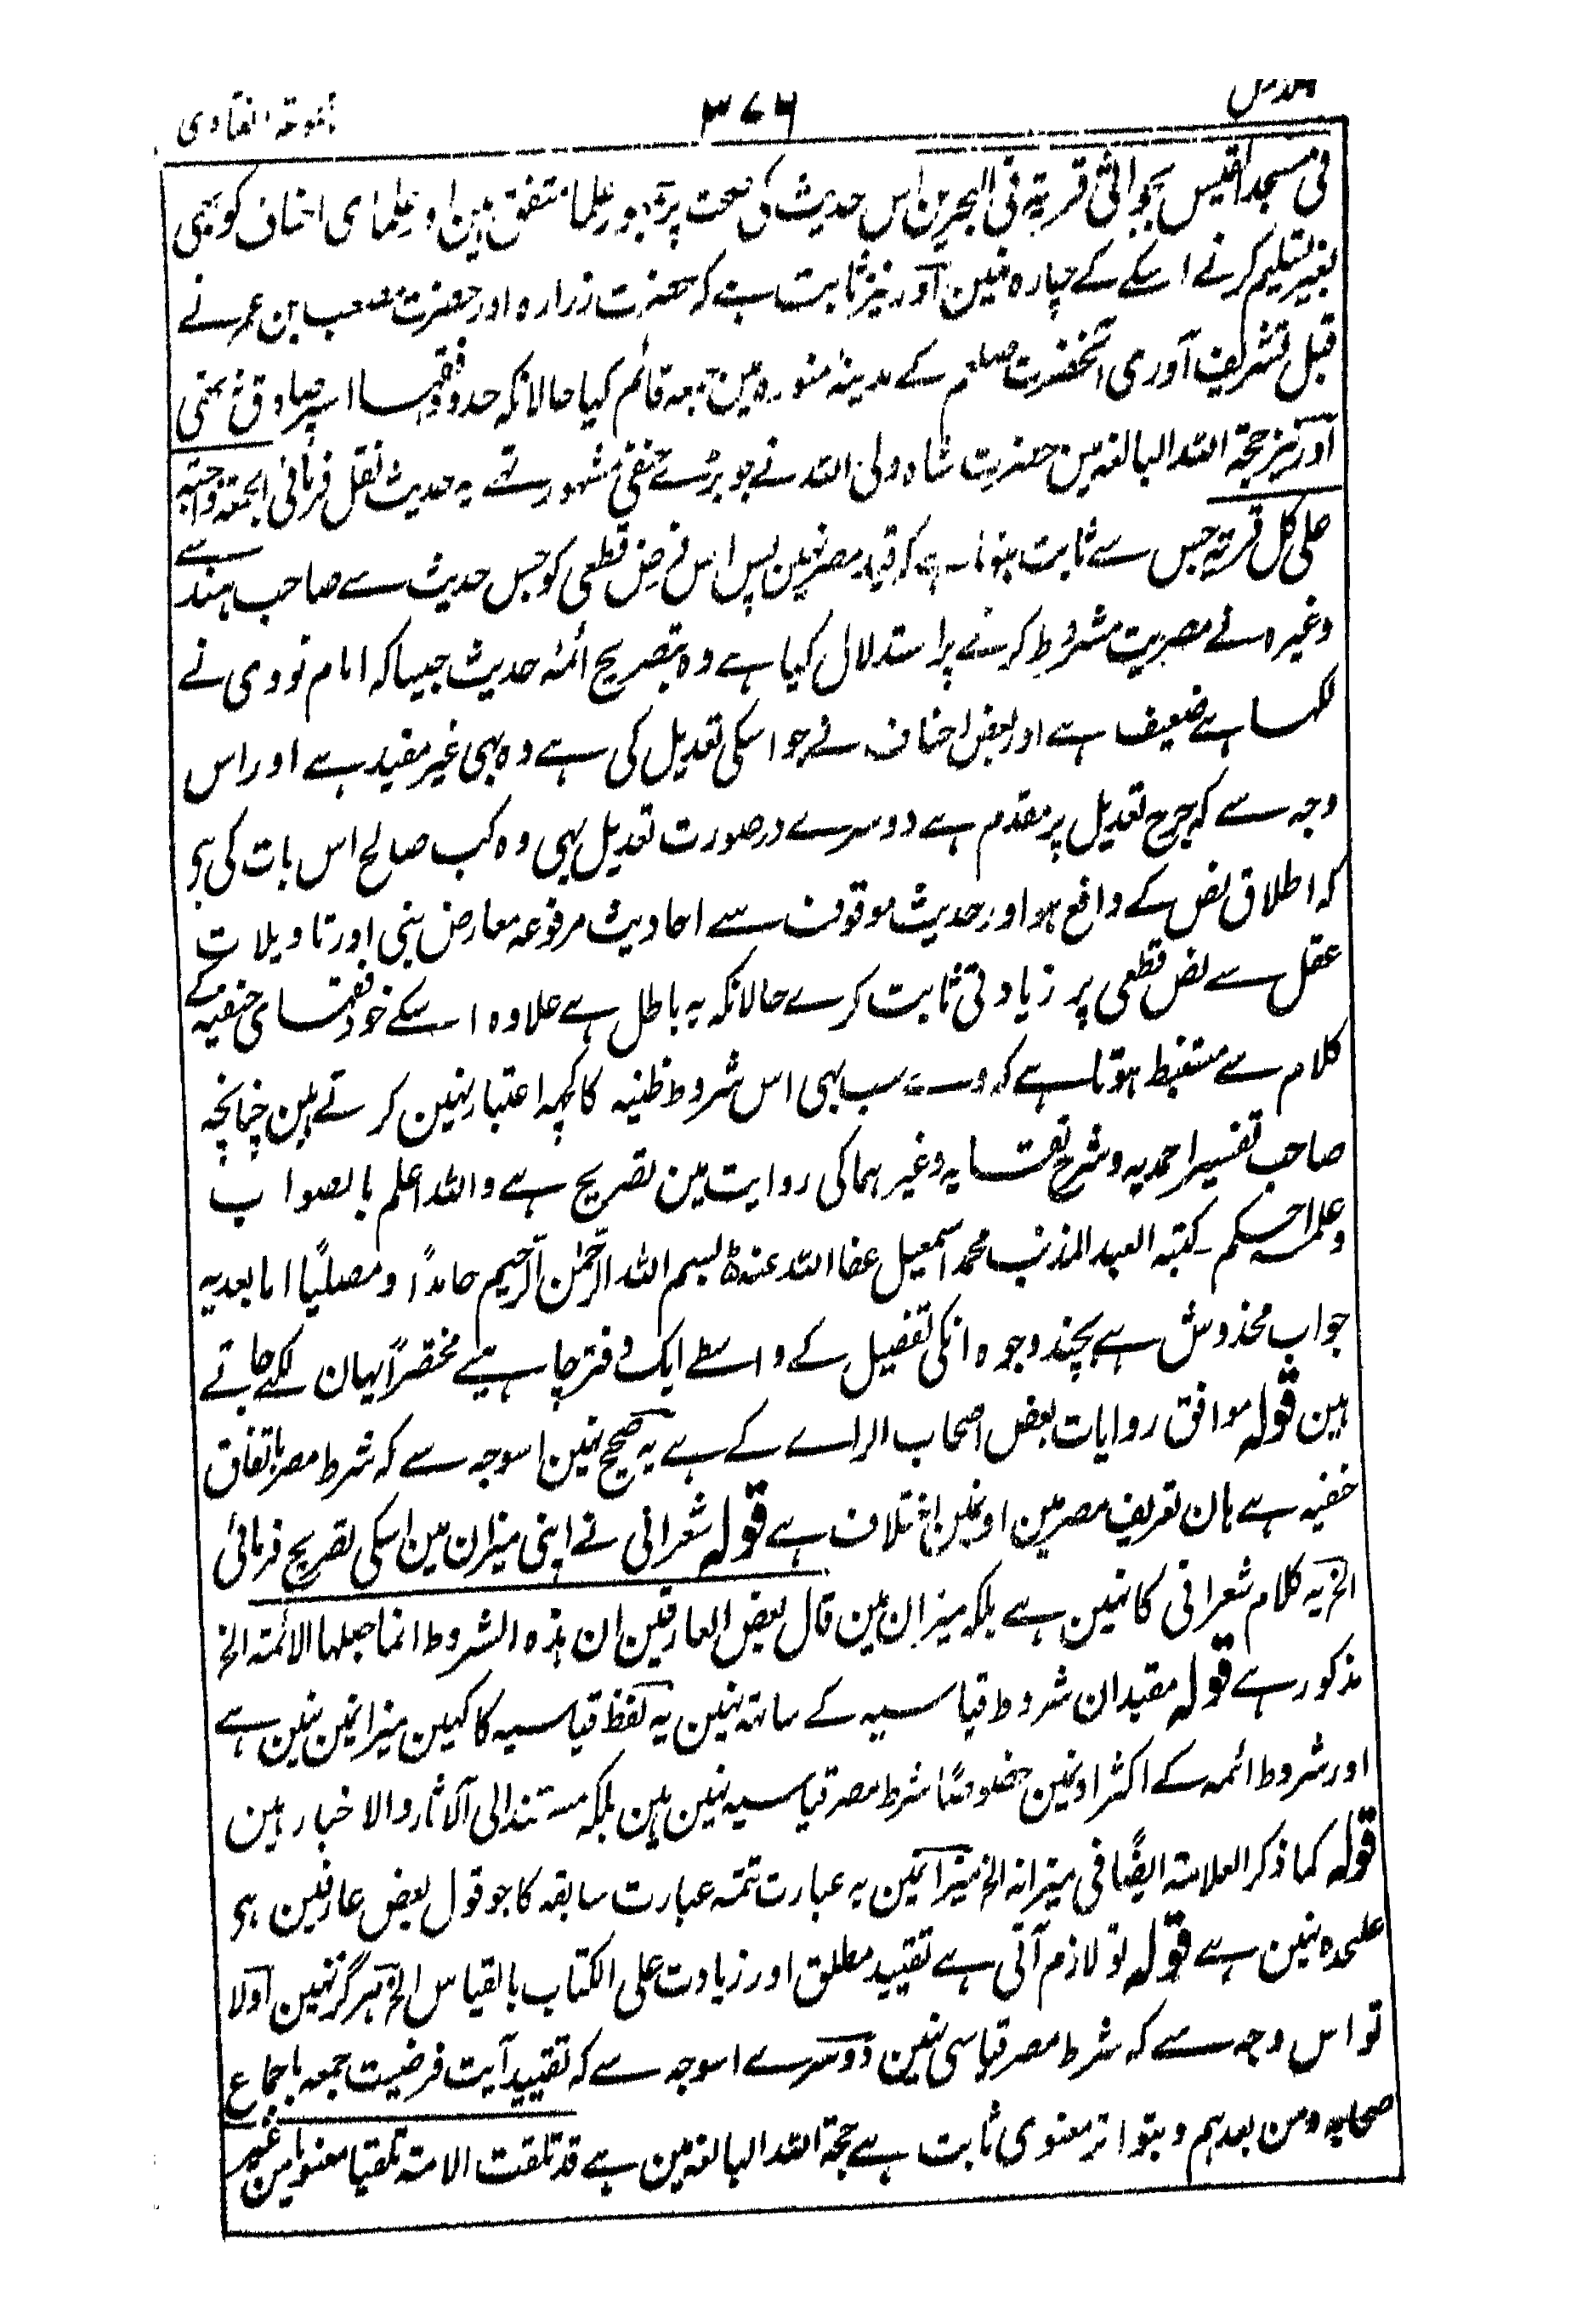 ۳۷۶
فی مسجد القیس بجواثی قریۃ فی البحرین اس حدیث کی صحت پر جمہور علما متفق ہین اور علمای احناف کو بہی
بغیر تسلیم کرنے اسکے کے چارہ نہین اور نیز ثابت ہے کہ حضرت زرارہ اور حضرت مصعب بن عمر نے
قبل تشریف آوری آنحضرت صلعم کے مدینۂ منورہ مین جمعہ قائم کیا حالانکہ حدود فقہا اسپر صادق نہ تھی
اور نیز حجۃ اللہ البالغہ مین حضرت شاہ ولی اللہ نے جو بڑے حنفی مشہور تھے یہ حدیث نقل فرمائی الجمعۃ واجبۃ
علی کل قریۃ جس سے ثابت ہوتا ہے کہ قید مصر نہین پس اس فرض قطعی کو جس حدیث سے صاحب ہندیہ
وغیرہ نے مصریت مشروط کرنے پر استدلال کیا ہے وہ بتصریح ائمۂ حدیث جیسا کہ امام نووی نے
لکہا ہے ضعیف ہے اور بعض احناف نے جو اسکی تعدیل کی ہے وہ بہی غیر مفید ہے اور اس
وجہ سے کہ جرح تعدیل پر مقدم ہے دوسرے در صورت تعدیل بہی وہ کب صالح اس بات کی ہو
کہ اطلاق نص کے دافع ہو اور حدیث موقوف سے احادیث مرفوعہ معارض بنی اور تاویلات
عقل سے نص قطعی پر زیادتی ثابت کرے حالانکہ یہ باطل ہے علاوہ اسکے خود فقہای حنفیہ کے
کلام سے مستنبط ہوتا ہے کہ وے سب بہی اس شروط ظنیہ کا کچہہ اعتبار نہین کرتے ہین چنانچہ
صاحب تفسیر احمدیہ و شرح نقایہ وغیرہما کی روایت مین تصریح ہے واللہ اعلم بالصواب
وعلمہ احکم ـ کتبہ العبد المذنب محمد اسمعیل عفا اللہ عنہ ھ بسم اللہ الرّحمٰن الرّحیم حامدًا و مصلیًا اما بعد یہ
جواب مخذوش ہے بچند وجوہ انکی تفصیل کے واسطے ایک دفتر چاہیے مختصراً یہان لکہے جاتے
ہین قولہ موافق روایات بعض اصحاب الراے کے ہے یہ صحیح نہین اسوجہ سے کہ شرط مصر باتفاق
حنفیہ ہے ہان تعریف مصر مین اونمین اختلاف ہے قولہ شعرانی نے اپنی میزان مین اسکی تصریح فرمائی
الخ یہ کلام شعرانی کا نہین ہے بلکہ میزان مین قال بعض العارفین ان ہذہ الشروط انما جعلہا الائمۃ الخ
مذکور ہے قولہ مقید ان شروط قیاسیہ کے ساتہہ نہین یہ لفظ قیاسیہ کا کہین میزانمین نہین ہے
اور شروط ائمہ کے اکثر اونمین خصوصًا شرط مصر قیاسیہ نہین ہین بلکہ مستند الی الآثار والاخبار ہین
قولہ کما ذکر العلامۃ ایضًا فی میزانہ الخ میزانمین یہ عبارت تتمہ عبارت سابقہ کا جو قول بعض عارفین ہو
علحدہ نہین ہے قولہ تو لازم آتی ہے تقیید مطلق اور زیادت علی الکتاب بالقیاس الخ ہرگز نہین اولا
تو اس وجہ سے کہ شرط مصر قیاسی نہین دوسرے اسوجہ سے کہ تقیید آیت فرضیت جمعہ باجماع
صحابہ ومن بعدہم و بتواتر معنوی ثابت ہے حجۃ اللہ البالغہ مین ہے قد تلقت الامۃ تلقیا معنویا من غیر